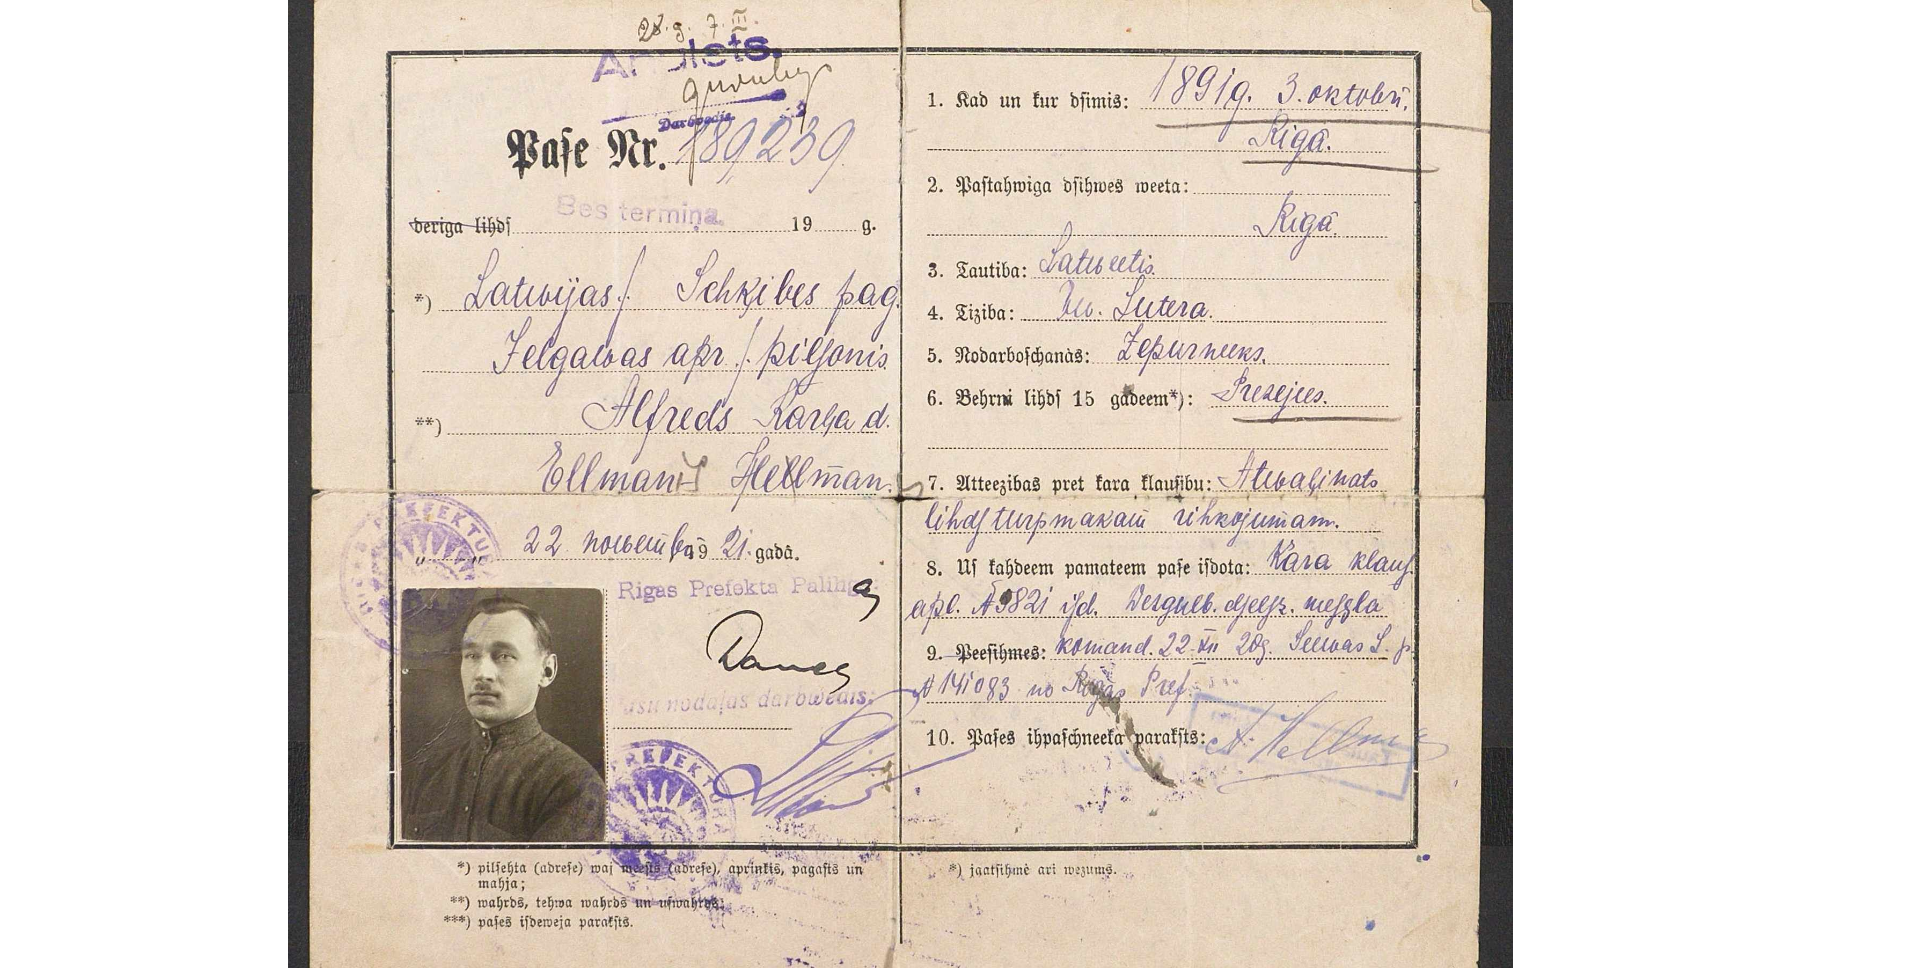 28. 9. 7. III.
Anulets.
Darbvedis
Paſe Nr. 189239
deriga lihdſ Bes termiņa. 19 g.
*) Latwijas/ Schķibes pag.
Jelgawas apr./ pilſonis
**) Alfreds Karļa d.
Ellman Hellman.
" " 22 novembrī 1921. gadā.
Rigas Prefekta Palihgs
nodaļas darbwedis:
1. Kad un kur dſimis: 1891g. 3. oktobrī.
Rīgā.
2. Paſtahwiga dſihwes weeta:
Rīgā.
3. Tautiba: Latweetis.
4. Tiziba: Ew. Lutera.
5. Nodarboſchanàs: Zepurneeks.
6. Behrni lihdſ 15 gadeem*): Prezejees.
7. Atteezibas pret kara klauſibu: Atwaļinats
lihdſ turpmakam rihkojumam.
8. Uſ kahdeem pamateem paſe iſdota: Kara klauſ.
apl. № 9821 iſd. dſelſz. mesgla
9. Peeſihmes: komand. 22 XII 20g.
№ 141083 no Rigas Pref.
10. Paſes ihpaſchneeka parakſts: A. Hellman
*) pilſehta (adreſe) waj meeſts (adreſe), aprinkis, pagaſts un
mahja;
**) wahrds, tehwa wahrds un uſwahrds;
***) paſes iſdeweja parakſts.
*) jaatſihmè ari wezums.